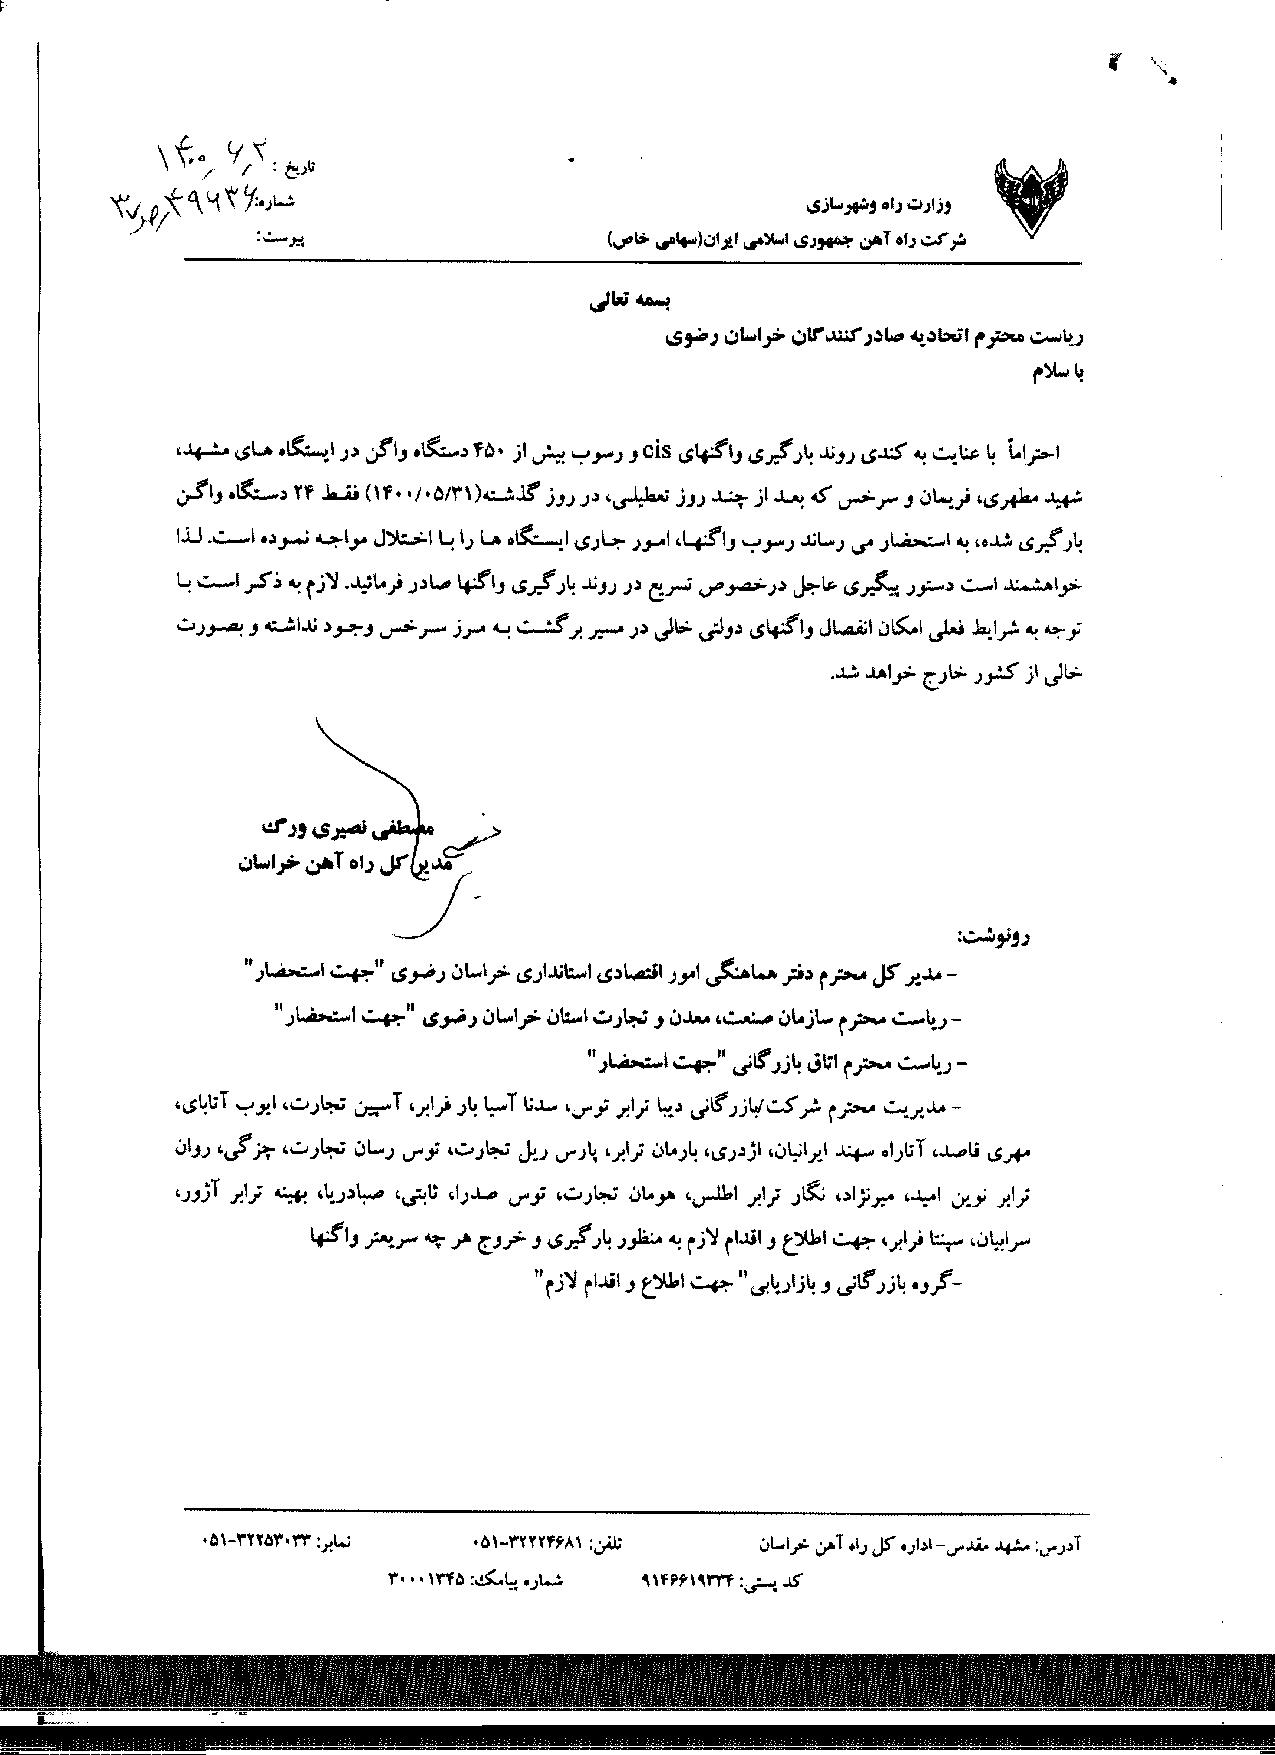 تاریخ : ۱۴۰۰/۶/۲
وزارت راه وشهرسازی
شماره:
شرکت راه آهن جمهوری اسلامی ایران(سهامی خاص)
پیوست:
بسمه تعالی
ریاست محترم اتحادیه صادرکنندگان خراسان رضوی
با سلام
احتراماً با عنایت به کندی روند بارگیری واگنهای cis و رسوب بیش از ۴۵۰ دستگاه واگن در ایستگاه های مشهد،
شهید مطهری، فریمان و سرخس که بعد از چند روز تعطیلی، در روز گذشته(۱۴۰۰/۰۵/۳۱) فقط ۲۴ دستگاه واگن
بارگیری شده، به استحضار می رساند رسوب واگنها، امور جاری ایستگاه ها را با اختلال مواجه نموده است. لذا
خواهشمند است دستور پیگیری عاجل درخصوص تسریع در روند بارگیری واگنها صادر فرمائید. لازم به ذکر است با
توجه به شرایط فعلی امکان انفصال واگنهای دولتی خالی در مسیر برگشت به مرز سرخس وجود نداشته و بصورت
خالی از کشور خارج خواهد شد.
مصطفی نصیری ورگ
مدیر کل راه آهن خراسان
رونوشت:
- مدیر کل محترم دفتر هماهنگی امور اقتصادی استانداری خراسان رضوی "جهت استحضار"
- ریاست محترم سازمان صنعت، معدن و تجارت استان خراسان رضوی "جهت استحضار"
- ریاست محترم اتاق بازرگانی "جهت استحضار"
- مدیریت محترم شرکت/بازرگانی دیبا ترابر توس، سدنا آسیا بار فرابر، آسین تجارت، ایوب آتابای،
مهری قاصد، آتاراه سهند ایرانیان، اژدری، بارمان ترابر، پارس ریل تجارت، توس رسان تجارت، چزگی، روان
ترابر نوین امید، میرنژاد، نگار ترابر اطلس، هومان تجارت، توس صدرا، ثابتی، صبادریا، بهینه ترابر آژور،
سرابیان، سپنتا فرابر، جهت اطلاع و اقدام لازم به منظور بارگیری و خروج هر چه سریعتر واگنها
-گروه بازرگانی و بازاریابی" جهت اطلاع و اقدام لازم"
آدرس: مشهد مقدس-اداره کل راه آهن خراسان تلفن: ۰۵۱-۳۲۲۲۴۶۸۱ نمابر: ۰۵۱-۳۲۲۵۳۰۳۳
کد پستی: ۹۱۴۶۶۱۹۳۳۴ شماره پیامک: ۳۰۰۰۱۳۴۵